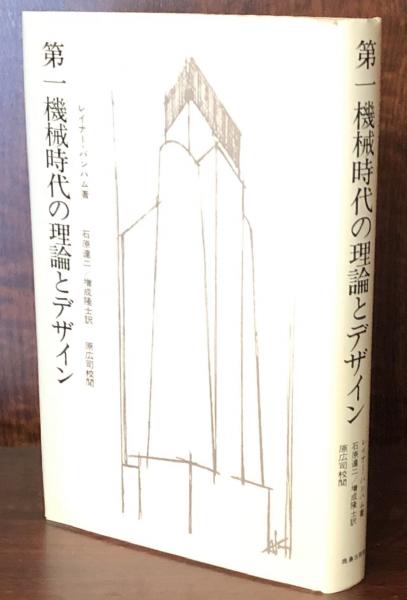 第一機械時代の理論とデザイン
レイナー・バンハム著
石原達二/増成隆士訳　原広司校閲
AK
第一機械時代の理論とデザイン
レイナー・バンハム著
石原達二/増成隆士訳
原広司校閲
鹿島出版会